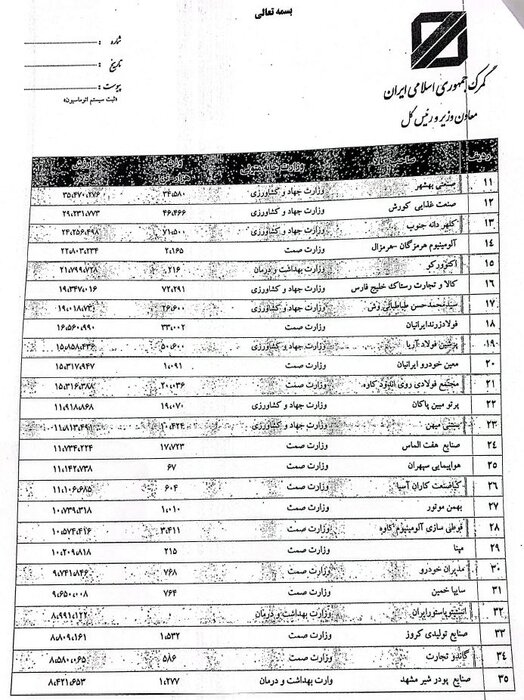 بسمه تعالی
شماره :
تاریخ :
پیوست :
«ثبت سیستم اتوماسیون»
گمرک جمهوری اسلامی ایران
معاون وزیر و رئیس کل
ردیف
۱۱ صنعتی بهشهر وزارت جهاد و کشاورزی ۳۴،۵۸۰ ۳۵،۴۷۰،۲۷۶
۱۲ صنعت غذایی کورش وزارت جهاد و کشاورزی ۴۶،۴۶۶ ۲۹،۲۳۱،۷۷۳
۱۳ کلهر دانه جنوب وزارت جهاد و کشاورزی ۷۱،۵۰۰ ۲۴،۲۵۶،۴۹۸
۱۴ آلومینیوم هرمزگان -هرمزال وزارت صمت ۲،۱۶۵ ۲۲،۸۰۳،۲۳۴
۱۵ اکتوورکو وزارت بهداشت و درمان ۲۱۶ ۲۱،۷۹۹،۷۲۸
۱۶ کالا و تجارت رستاک خلیج فارس وزارت جهاد و کشاورزی ۷۲،۲۹۱ ۱۹،۳۴۷،۰۱۶
۱۷ سیدمحمدحسن طباطبائی زش وزارت جهاد و کشاورزی ۲۶،۶۰۰
۱۸ فولادزرندایرانیان وزارت صمت ۳۳،۰۰۲ ۱۶،۵۶۰،۹۹۰
۱۹ پرشین فولاد آریا وزارت جهاد و کشاورزی ۵۰،۶۰۰ ۱۵،۸۵۸،۴۳۶
۲۰ معین خودرو ایرانیان وزارت صمت ۱،۰۹۱ ۱۵،۳۱۷،۹۴۷
۲۱ مجتمع فولادی روی اندود کاوه وزارت صمت ۲۰،۰۳۶ ۱۵،۳۱۶،۳۸۸
۲۲ پرتو مبین پاکان وزارت جهاد و کشاورزی ۱۹،۰۷۰ ۱۱،۹۱۸،۸۶۸
۲۳ بستنی میهن وزارت جهاد و کشاورزی ۱۱،۸۱۳،۴۹۱
۲۴ صنایع هفت الماس وزارت صمت ۱۷،۷۲۳ ۱۱،۷۳۴،۲۲۴
۲۵ هواپیمایی سپهران وزارت صمت ۶۷ ۱۱،۱۴۲،۷۳۸
۲۶ کیاصنعت کاران آسیا وزارت صمت ۶۰۴ ۱۱،۱۰۶،۶۸۵
۲۷ بهمن موتور وزارت صمت ۱،۰۱۰ ۱۰،۷۳۹،۳۱۸
۲۸ قوطی سازی آلومینیوم کاوه وزارت صمت ۳،۴۱۱ ۱۰،۵۷۴،۴۱۶
۲۹ مپنا وزارت صمت ۲۱۵ ۱۰،۲۰۹،۸۱۸
۳۰ مدیران خودرو وزارت صمت ۷۶۸ ۹،۷۴۱،۸۴۶
۳۱ سایپا خمین وزارت صمت ۷۶۴ ۹،۶۵۰،۰۰۸
۳۲ انستیتوپاستورایران وزارت بهداشت و درمان ۰ ۸،۹۹۱،۱۲۲
۳۳ صنایع تولیدی کروز وزارت صمت ۱،۵۳۲ ۸،۸۰۹،۱۶۱
۳۴ گاندو تجارت وزارت صمت ۵۸۶ ۸،۵۸۰،۰۶۵
۳۵ صنایع پودر شیر مشهد وزارت بهداشت و درمان ۱،۲۷۷ ۸،۴۲۱،۶۵۳